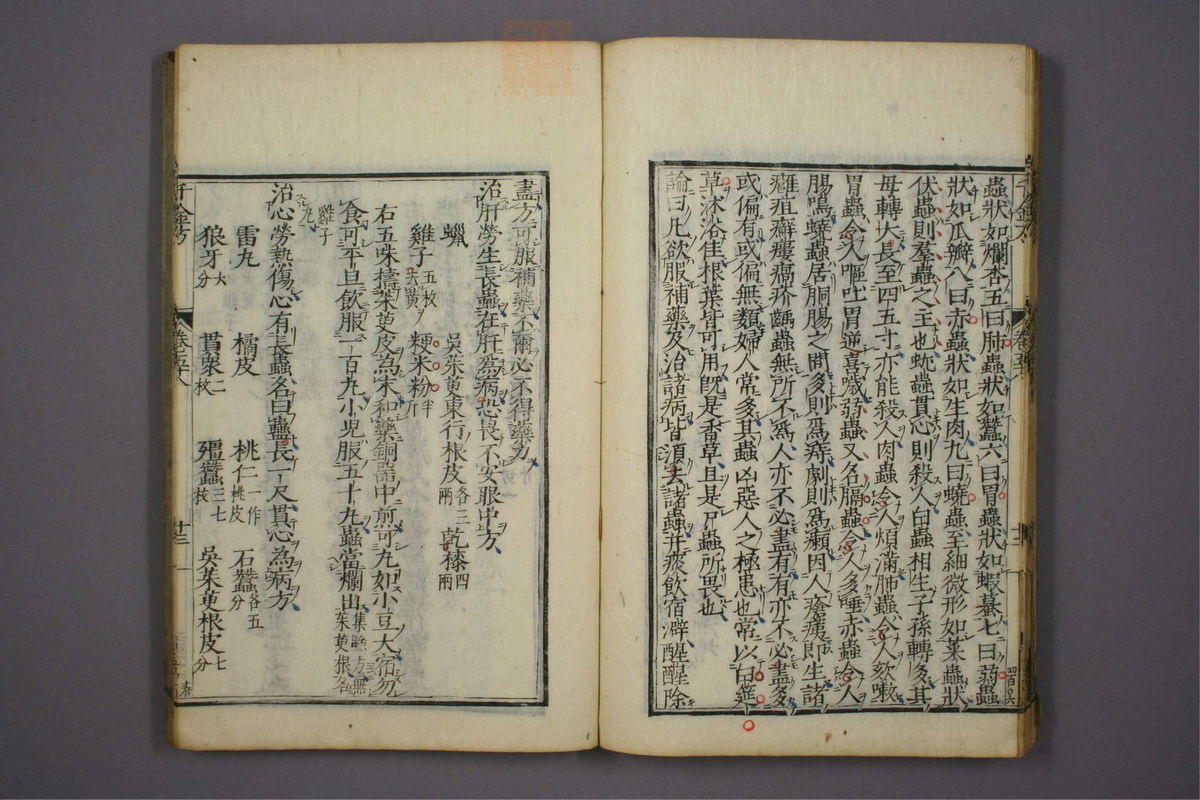 蟲狀如爛杏五曰肺蟲狀如蠶六曰胃蟲狀如蝦蟇七曰弱蟲
狀如瓜瓣八曰赤蟲狀如生肉九曰蟯蟲至細微形如菜蟲狀
伏蟲則羣蟲之主也蚘蟲貫心則殺人白蟲相生子孫轉多其
母轉大長至四五寸亦能殺人肉蟲令人煩滿肺蟲令人欬嗽
胃蟲令人嘔吐胃逆喜噦弱蟲又名膈蟲令人多唾赤蟲令人
腸鳴蟯蟲居胴腸之間多則爲痔劇則爲癩因人瘡痍即生諸
癰疽癬瘻瘑疥齲蟲無所不爲人亦不必盡有有亦不必盡多
或偏有或偏無類婦人常多其蟲凶惡人之極患也常以白筵
草沐浴佳根葉皆可用既是香草且是尸蟲所畏也
論曰凡欲服補藥及治諸病皆須去諸蟲并痰飲宿澼醒醒除
盡方可服補藥不爾必不得藥力
治肝勞生長蟲在肝爲病恐畏不安眼中方
蠟 吳茱萸東行根皮各三兩 乾㯃四兩
雞子五枚去黃 粳米粉半斤
右五味擣茱萸皮為末和藥銅器中煎可丸如小豆大宿勿
食可平旦飲服一百丸小兒服五十丸蟲當爛出集驗方無茱萸根名
雞子丸
治心勞熱傷心有長蟲名曰蠱長一尺貫心為病方
雷丸 橘皮 桃仁一作桃皮 石蠶各五分
狼牙六分 貫衆二枚 殭蠶三七枚 吳茱萸根皮七分
千金方
卷五十八
廿三